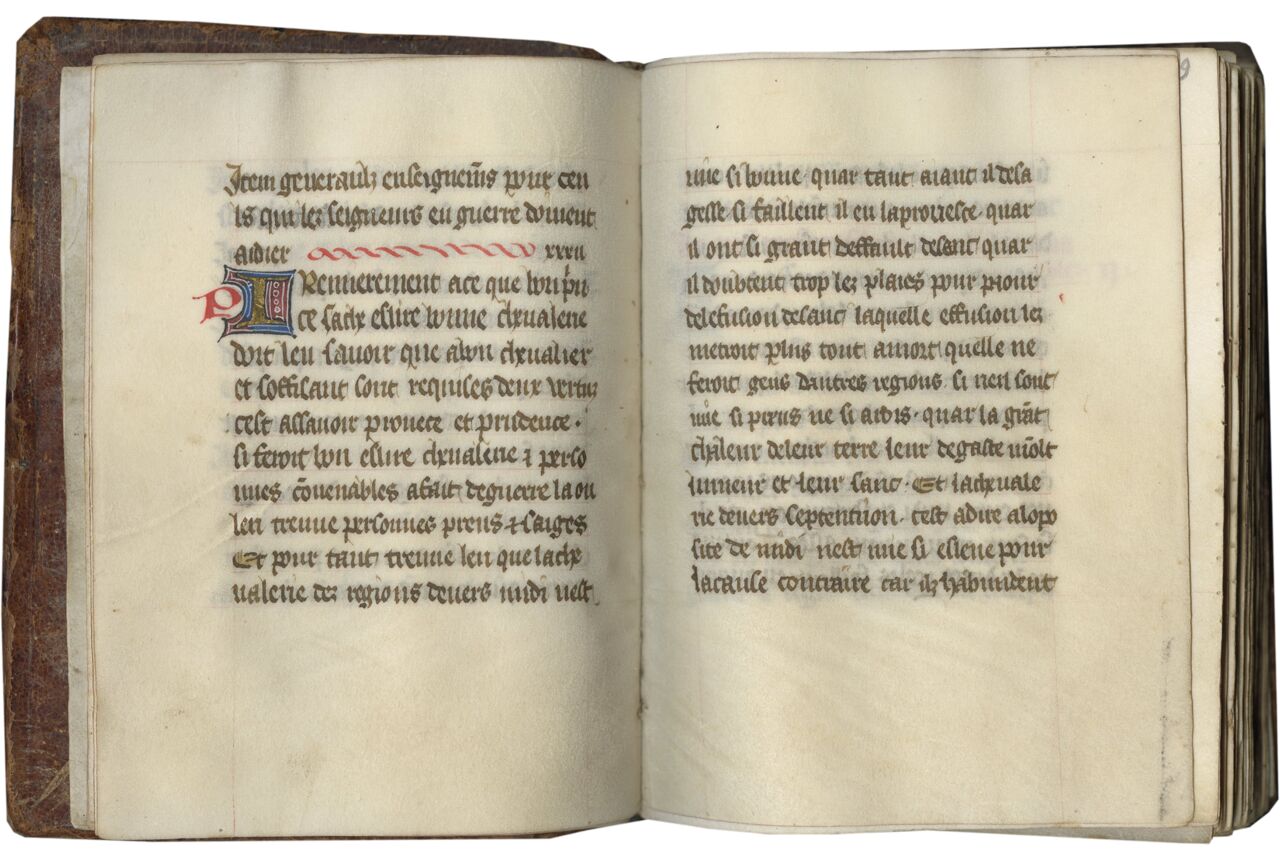 Item generaulz enseignem̄s pour ceu
ls qui lez seigneurs en guerre doiuent
aidier xxxii
P Remierement ace que bon pͥn
ce sache eslire bonne cheualerie
doit len sauoir que abon cheualier
et soffisant sont requises deux vertus
cest assauoir prouece et prudence .
si feroit bon eslire cheualerie ⁊ perso
nnes cōuenables afait deguerre la ou
len treuue personnes preus ⁊ saiges
Et pour tant treuue len que lache
ualerie dez regions deuers midi nest
9
mie si bonne . quar tant aiant il desa
gesse si faillent il en laprouesce . quar
il ont si grant deffault desant quar
il doubtent trop lez plaies pour paour
delefusion desanc laquelle effusion lez
metroit plus tout amort quelle ne
feroit gens dautres regions . si nen sont
mie si preus ne si ardis . quar la grāt
chaleur deleur terre leur degaste mōlt
lumeur et leur sanc . Et lacheuale
rie deuers septentrion . cest adire alopo
site de midi nest mie si esleue pour
lacause contraire car ilz habundent